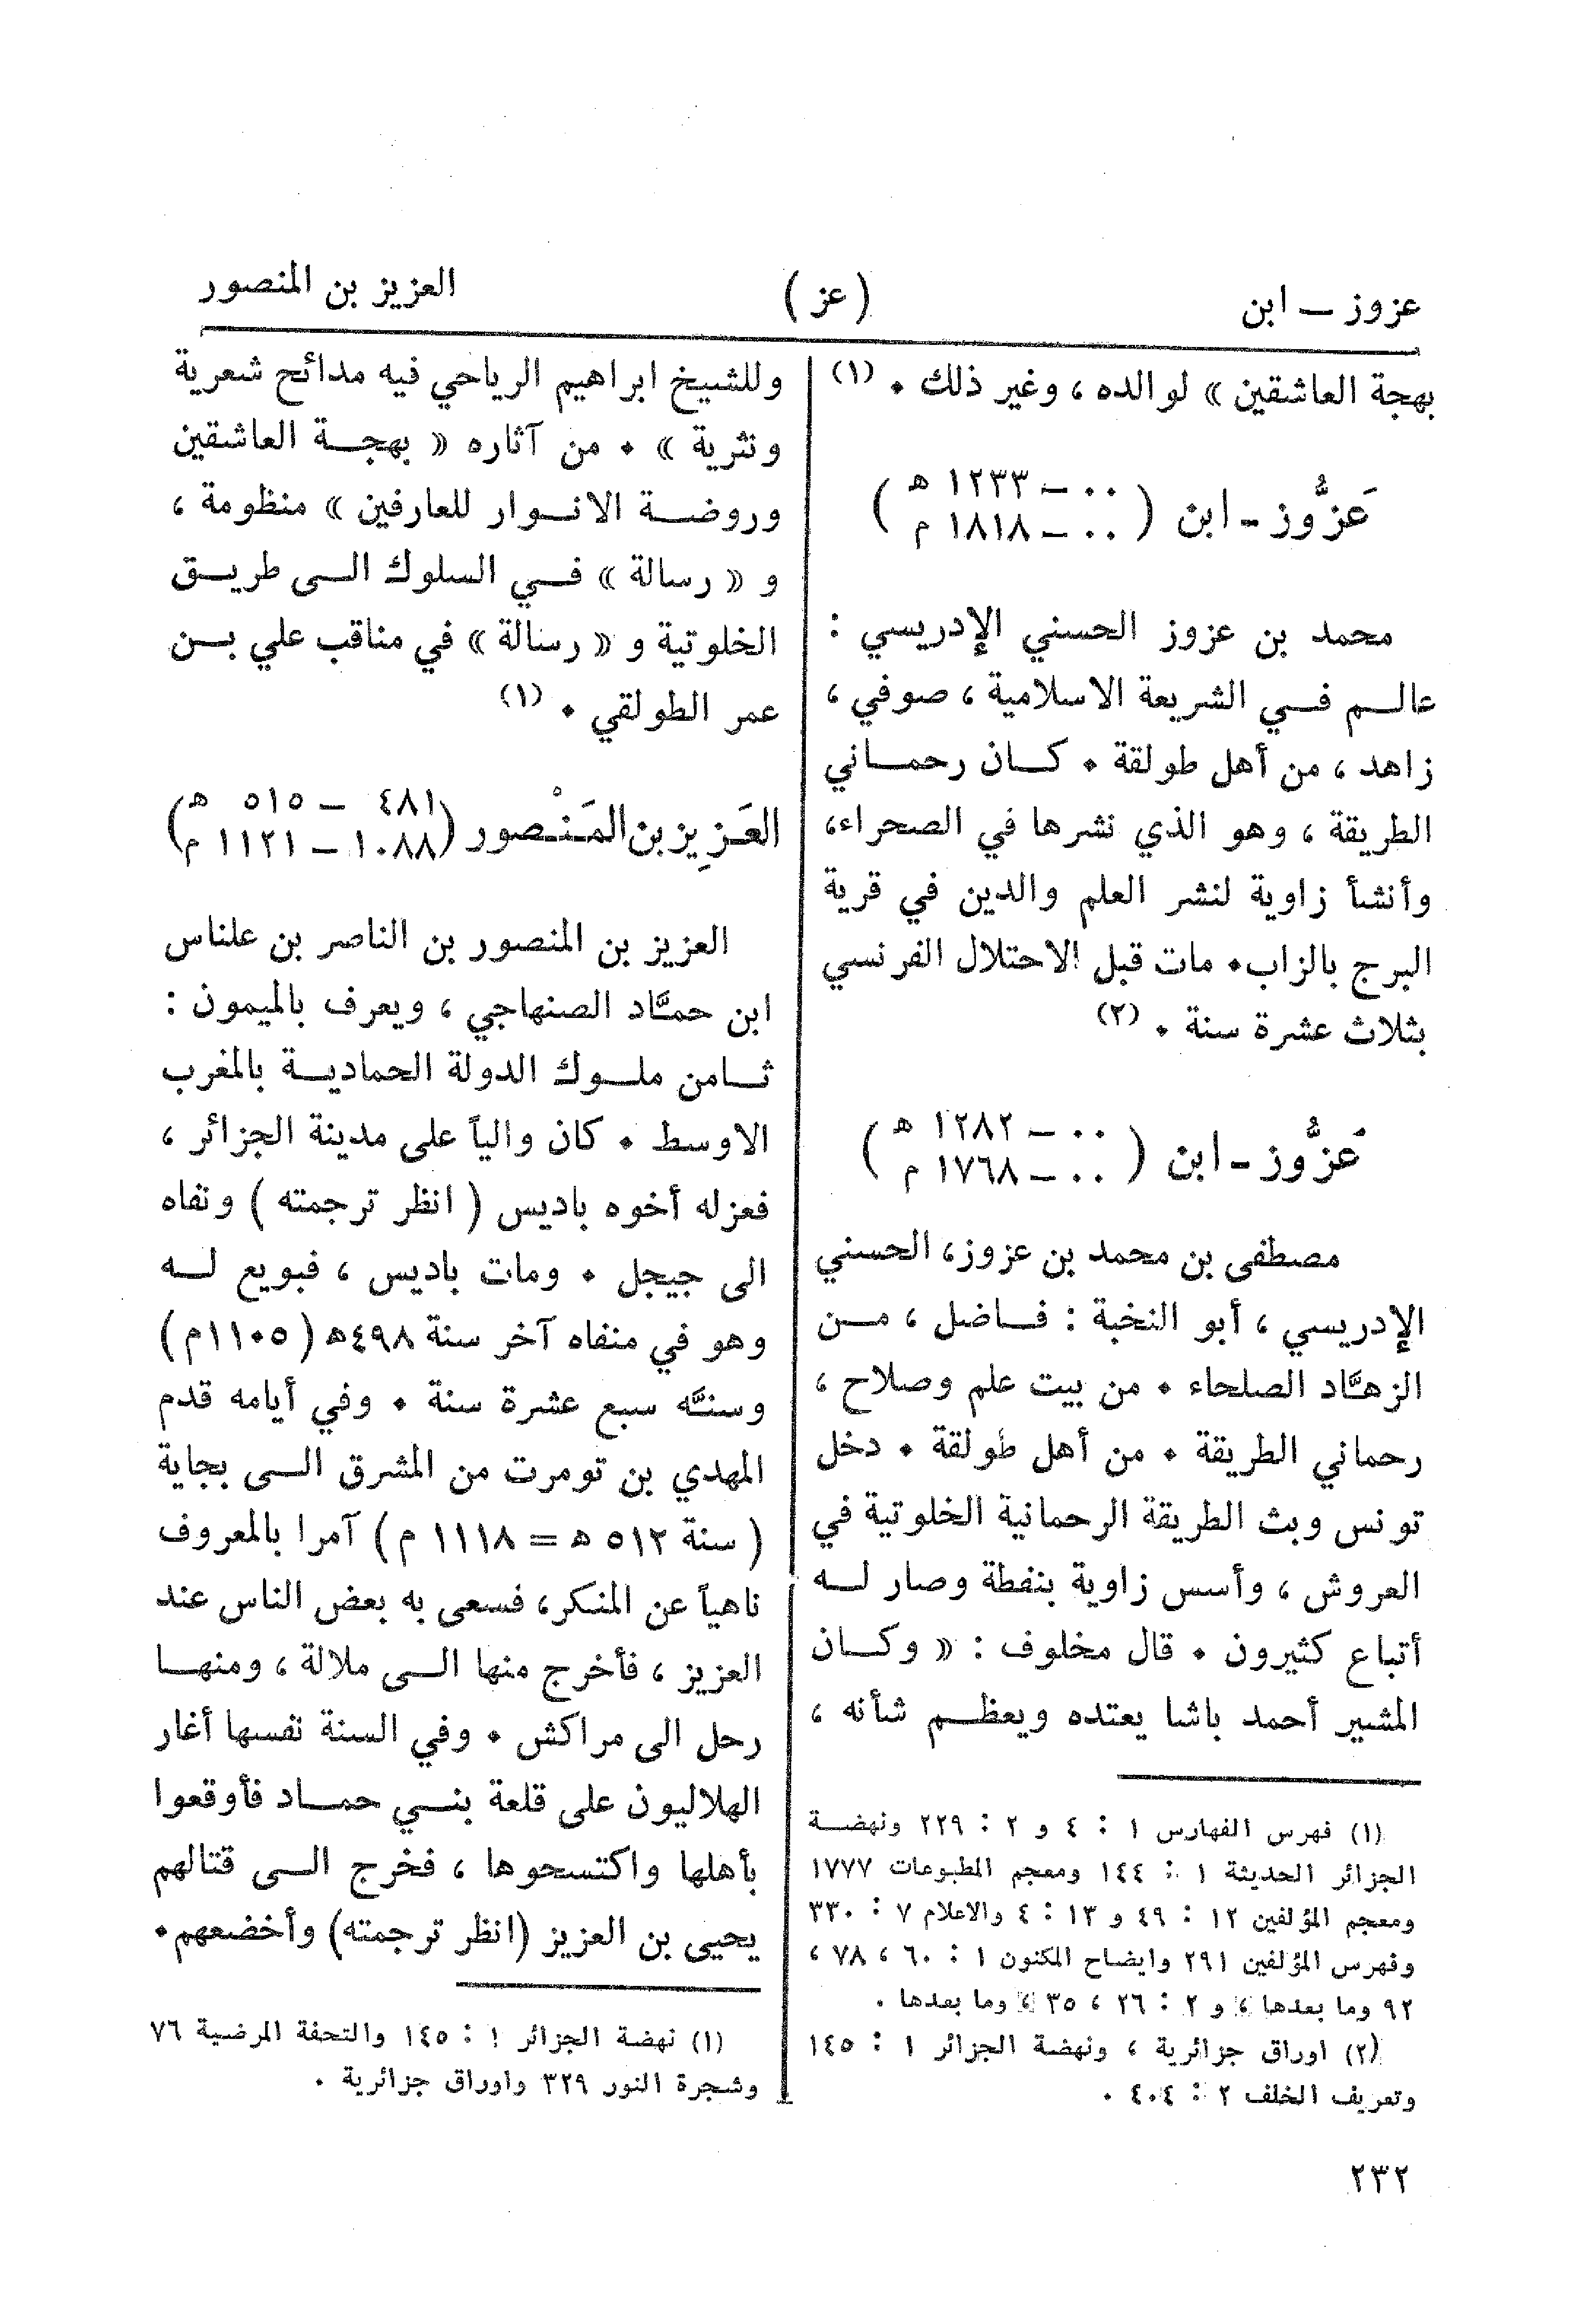 عزوز — ابن
( عز )
العزيز بن المنصور
بهجة العاشقين » لوالده ، وغير ذلك . (١)
عَزُّوز - ابن ( ٠٠ – ١٢٣٣ هـ
٠٠ – ١٨١٨ م )
محمد بن عزوز الحسني الإدريسي :
عالم في الشريعة الاسلامية ، صوفي ،
زاهد ، من أهل طولقة . كان رحماني
الطريقة ، وهو الذي نشرها في الصحراء،
وأنشأ زاوية لنشر العلم والدين في قرية
البرج بالزاب. مات قبل الاحتلال الفرنسي
بثلاث عشرة سنة . (٢)
عَزُّوز - ابن ( ٠٠ – ١٢٨٢ هـ
٠٠ – ١٧٦٨ م )
مصطفى بن محمد بن عزوز، الحسني
الإدريسي ، أبو النخبة : فاضل ، من
الزهَّاد الصلحاء . من بيت علم وصلاح ،
رحماني الطريقة . من أهل طولقة . دخل
تونس وبث الطريقة الرحمانية الخلوتية في
العروش ، وأسس زاوية بنفطة وصار له
أتباع كثيرون . قال مخلوف : « وكان
المشير أحمد باشا يعتده ويعظم شأنه ،
(١) فهرس الفهارس ١ : ٤ و ٢ : ٢٢٩ ونهضة
الجزائر الحديثة ١ : ١٤٤ ومعجم المطبوعات ١٧٧٧
ومعجم المؤلفين ١٢ : ٤٩ و ١٣ : ٤ والاعلام ٧ : ٣٣٠
وفهرس المؤلفين ٢٩١ وايضاح المكنون ١ : ٦٠ ، ٧٨ ،
٩٢ وما بعدها ، و ٢ : ٢٦ ، ٣٥ ، وما بعدها .
(٢) اوراق جزائرية ، ونهضة الجزائر ١ : ١٤٥
وتعريف الخلف ٢ : ٤٠٤ .
وللشيخ ابراهيم الرياحي فيه مدائح شعرية
ونثرية » . من آثاره « بهجة العاشقين
وروضة الانوار للعارفين » منظومة ،
و « رسالة » في السلوك الى طريق
الخلوتية و « رسالة » في مناقب علي بن
عمر الطولقي . (١)
العَزِيز بن المَنْصور ( ٤٨١ – ٥١٥ هـ
١٠٨٨ – ١١٢١ م )
العزيز بن المنصور بن الناصر بن علناس
ابن حمَّاد الصنهاجي ، ويعرف بالميمون :
ثامن ملوك الدولة الحمادية بالمغرب
الاوسط . كان والياً على مدينة الجزائر ،
فعزله أخوه باديس ( انظر ترجمته ) ونفاه
الى جيجل . ومات باديس ، فبويع له
وهو في منفاه آخر سنة ٤٩٨هـ ( ١١٠٥م )
وسنَّه سبع عشرة سنة . وفي أيامه قدم
المهدي بن تومرت من المشرق الى بجاية
( سنة ٥١٢ هـ = ١١١٨ م ) آمرا بالمعروف
ناهياً عن المنكر، فسعى به بعض الناس عند
العزيز ، فأخرج منها الى ملالة ، ومنها
رحل الى مراكش . وفي السنة نفسها أغار
الهلاليون على قلعة بني حماد فأوقعوا
بأهلها واكتسحوها ، فخرج الى قتالهم
يحيى بن العزيز (انظر ترجمته) وأخضعهم.
(١) نهضة الجزائر ١ : ١٤٥ والتحفة المرضية ٧٦
وشجرة النور ٣٢٩ واوراق جزائرية .
٢٣٢